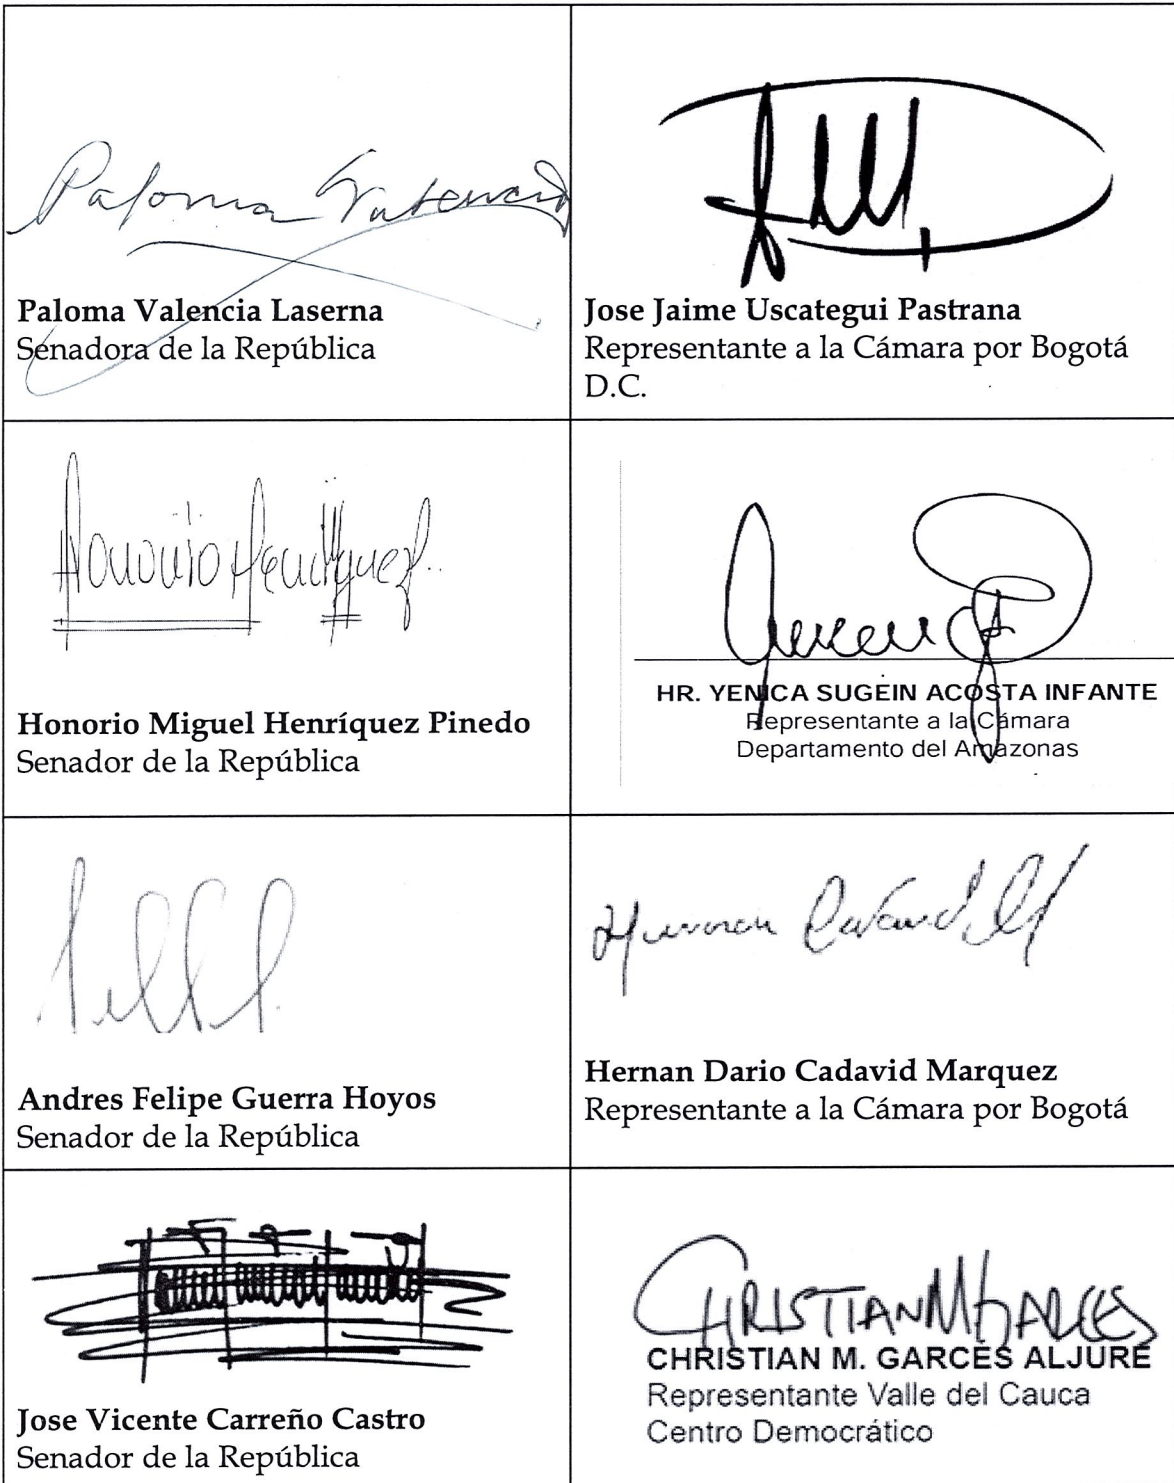 Paloma Valencia
Paloma Valencia Laserna
Senadora de la República
Jose Jaime Uscategui Pastrana
Representante a la Cámara por Bogotá
D.C.
Honorio Henríquez
Honorio Miguel Henríquez Pinedo
Senador de la República
HR. YENICA SUGEIN ACOSTA INFANTE
Representante a la Cámara
Departamento del Amazonas
Andres Felipe Guerra Hoyos
Senador de la República
Hernan Cadavid M
Hernan Dario Cadavid Marquez
Representante a la Cámara por Bogotá
Jose Vicente Carreño Castro
Senador de la República
CHRISTIAN M GARCES
CHRISTIAN M. GARCÉS ALJURE
Representante Valle del Cauca
Centro Democrático